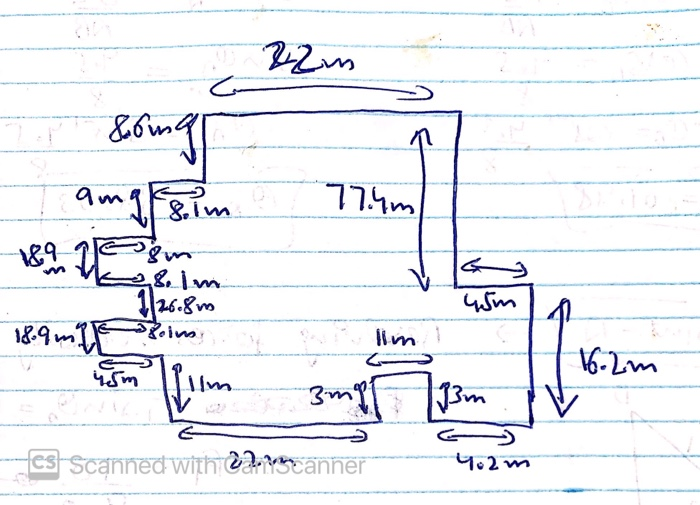 22m
8.6m
9m
8.1m
77.4m
18.9
m
8m
8.1m
26.8m
18.9m
8.1m
4.5m
45m
11m
11m
3m
3m
16.2m
4.2m
CS Scanned with CamScanner